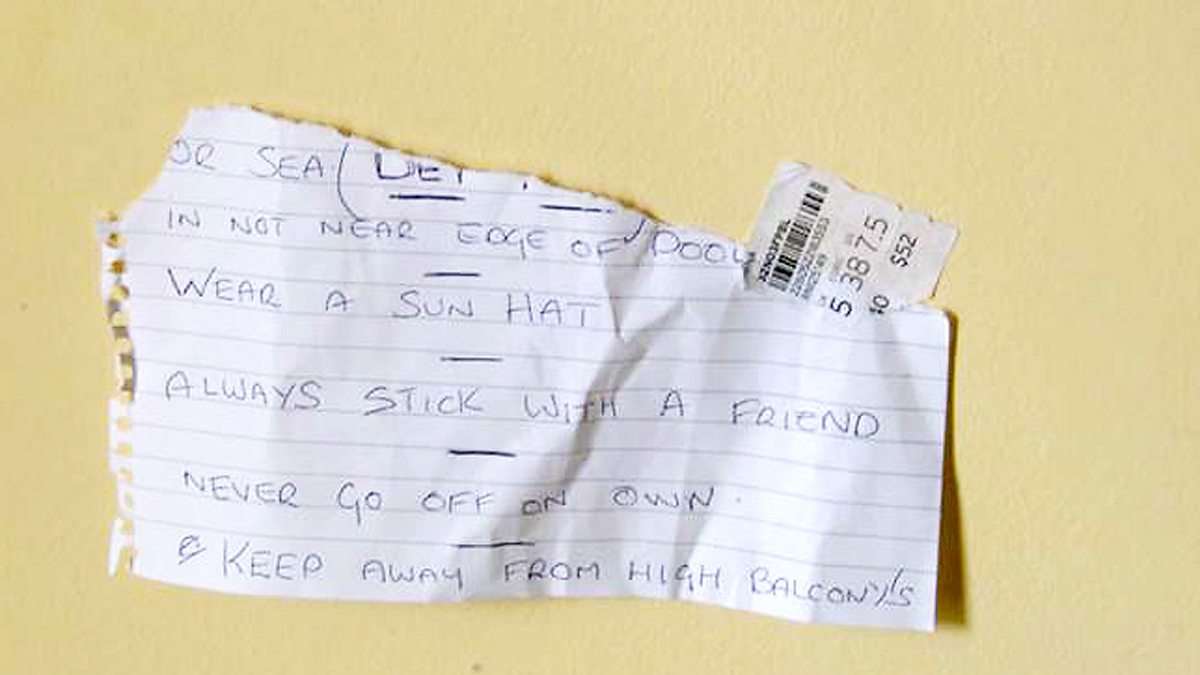 OR SEA (
IN NOT NEAR EDGE OF POOL
WEAR A SUN HAT
ALWAYS STICK WITH A FRIEND
NEVER GO OFF ON OWN.
& KEEP AWAY FROM HIGH BALCONY'S
5 3875
$52